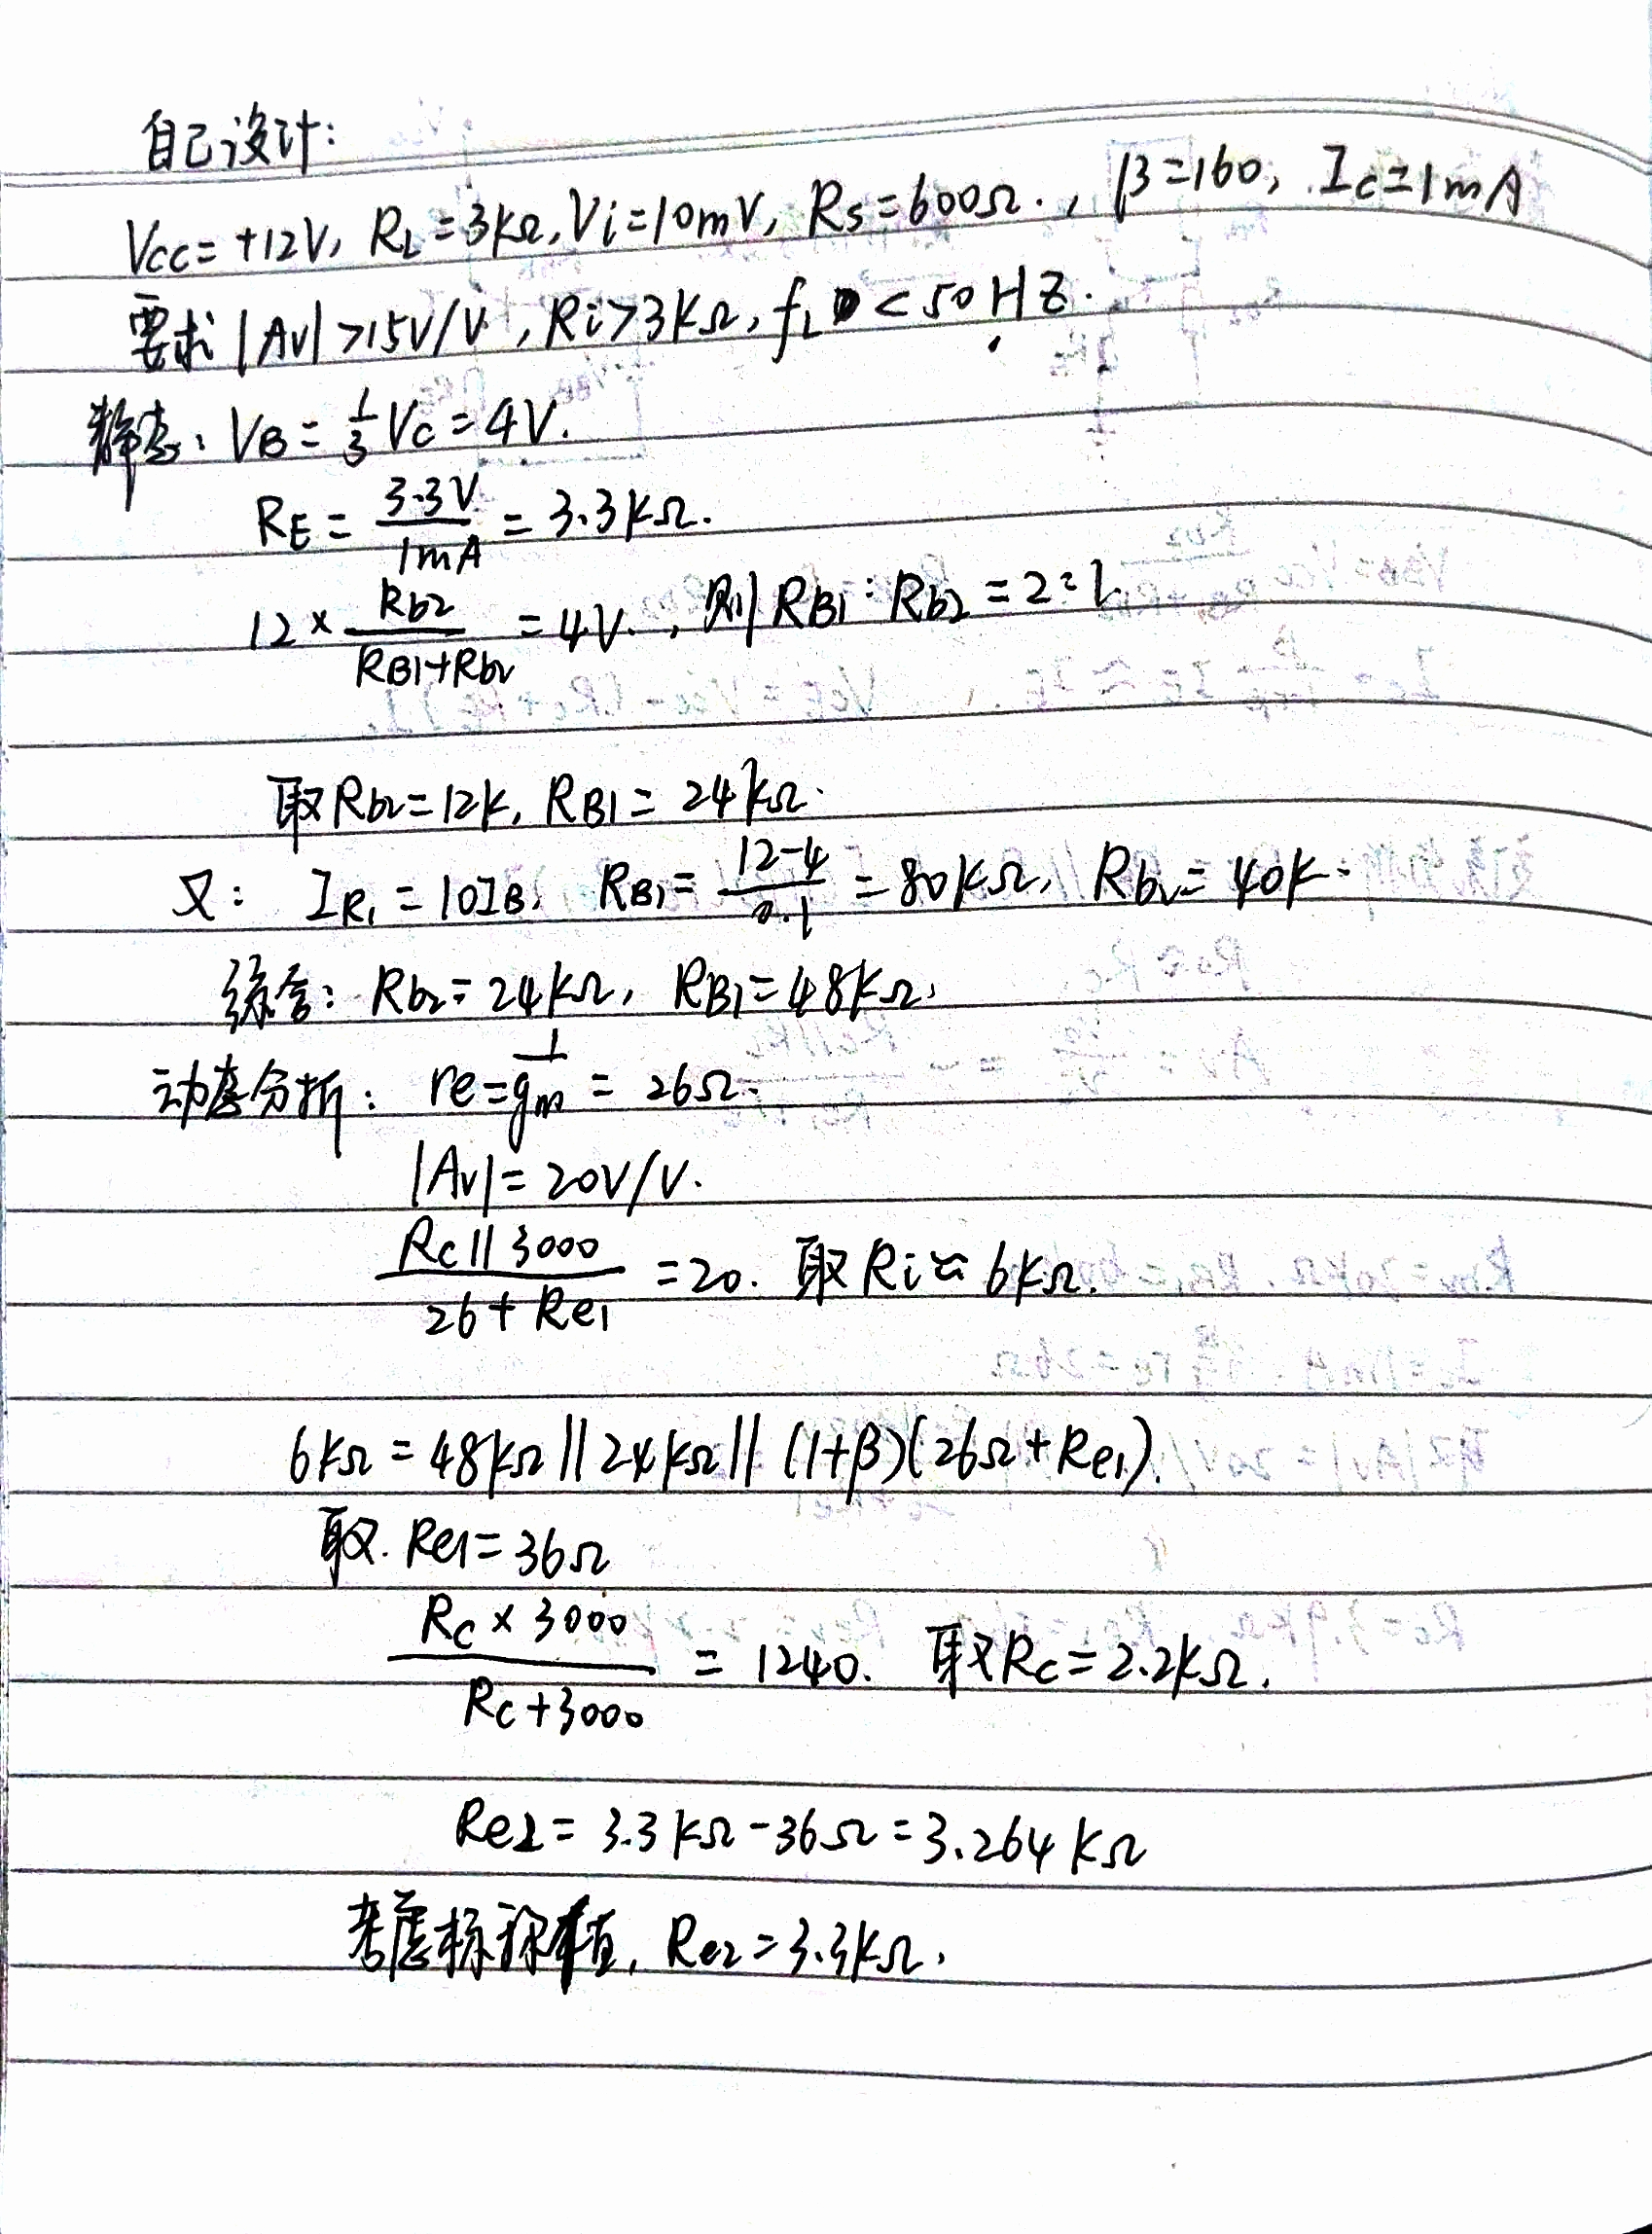 自己设计:
Vcc=+12V, RL=3kΩ, Vi=10mV, Rs=600Ω., β=160, Ic=1mA
要求|Av|>15V/V, Ri>3kΩ, fL<50HZ.
静态: VB=1/3Vc=4V.
RE=3.3V/1mA=3.3kΩ.
12×Rb2/(RB1+Rb2)=4V., 则RB1:Rb2=2:1
取Rb2=12k, RB1=24kΩ.
又: IR1=10IB, RB1=(12-4)/0.1=80kΩ, Rb2=40k.
综合: Rb2=24kΩ, RB1=48kΩ,
动态分析: re=1/gm=26Ω.
|Av|=20V/V.
Rc||3000/(26+Re1)=20. 取Ri≈6kΩ.
6kΩ=48kΩ||24kΩ||(1+β)(26Ω+Re1).
取.Re1=36Ω
Rc×3000/(Rc+3000)=1240. 取Rc=2.2kΩ.
Re2=3.3kΩ-36Ω=3.264kΩ
考虑标称值, Re2=3.3kΩ.